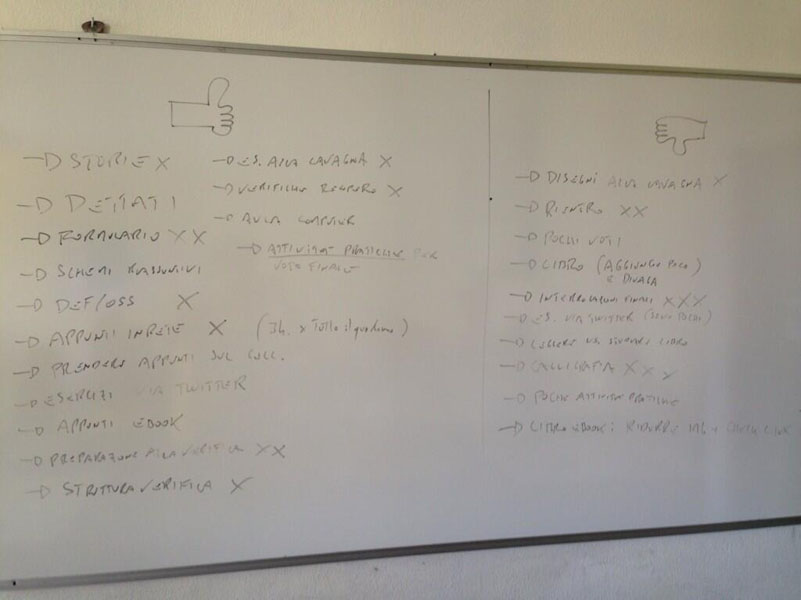 → STORIE X
→ DETTATI
→ FORMULARIO X X
→ SCHEMI RIASSUNTIVI
→ DEF/OSS X
→ APPUNTI IN RETE X (3h. x tutto il quaderno)
→ PRENDERE APPUNTI SUL
→ ESERCIZI VIA TWITTER
→ APPUNTI EBOOK
→ PREPARAZIONE ALLA VERIFICA X X
→ STRUTTURA VERIFICA X
→ ES. ALLA LAVAGNA X
→ VERIFICHE RECUPERO X
→ AULA COMPUTER
→ ATTIVITA' PRATICHE PER
VOTO FINALE
→ DISEGNI ALLA LAVAGNA X
→ RIENTRO X X
→ POCHI VOTI
→ LIBRO (AGGIUNGE POCO)
E DIVAGA
→ INTERROGAZIONI FINALI X X X
→ ES. VIA TWITTER (SONO POCHI)
→ LIBRO
→ CALLIGRAFIA X X X
→ POCHE ATTIVITA' PRATICHE
→ LIBRO EBOOK: RIDURRE MB + CHECK LINK